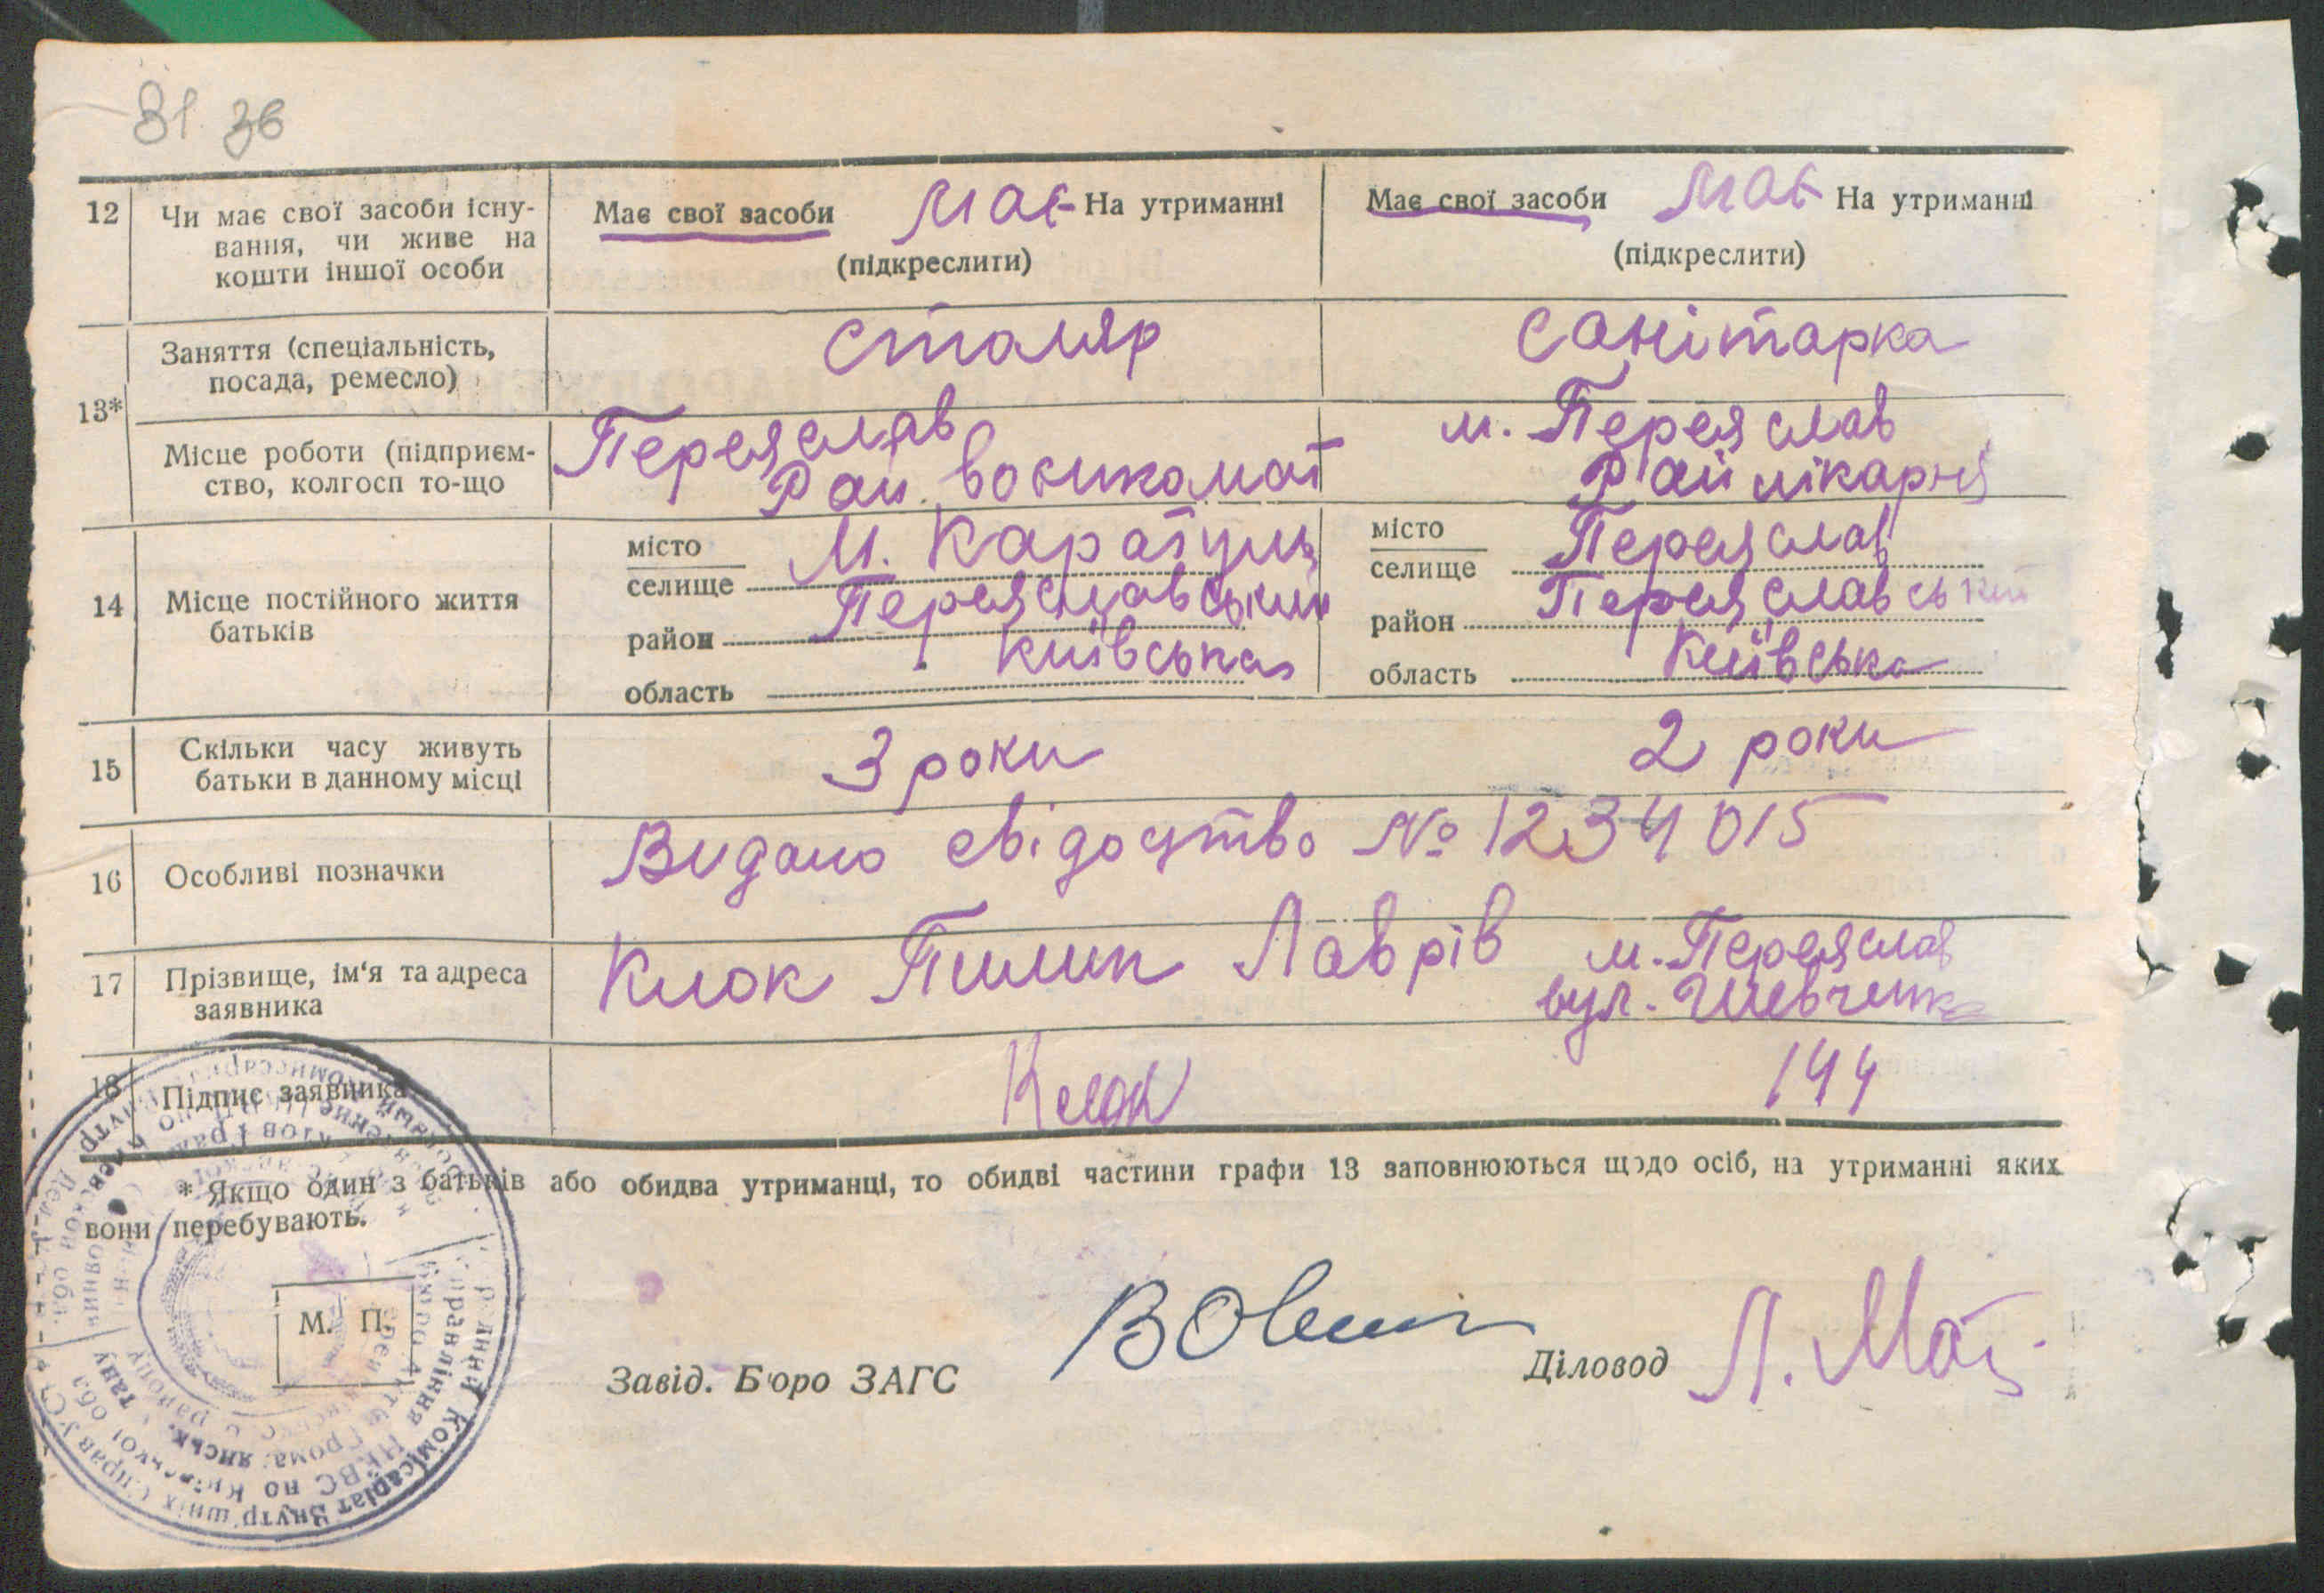 81 36
12 Чи має свої засоби існу-
вання, чи живе на
кошти іншої особи
Має свої засоби має На утриманні
(підкреслити)
Має свої засоби має На утриманні
(підкреслити)
13*
Заняття (спеціальність,
посада, ремесло)
столяр
санітарка
Місце роботи (підприєм-
ство, колгосп то-що
Переяслав
Рай. воєнкомат
м. Переяслав
Рай лікарня
14 Місце постійного життя
батьків
місто
селище М. Каратуль
район Переяславський
область Київська
місто
селище Переяслав
район Переяславський
область Київська
15 Скільки часу живуть
батьки в данному місці
3 роки
2 роки
16 Особливі позначки
Видано свідоцтво № 1234015
17 Прізвище, ім'я та адреса
заявника
Клок Пилип Лаврів м. Переяслав
вул. Шевченка
144
18 Підпис заявника
Клок
* Якщо один з батьків або обидва утриманці, то обидві частини графи 13 заповнюються щодо осіб, на утриманні яких
вони перебувають.
М. П.
Завід. Б'юро ЗАГС
Діловод